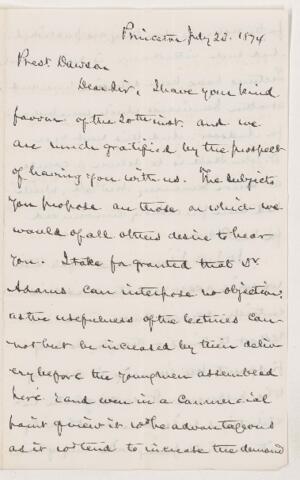 Princeton July 22. 1874
Prest. Dawson
Dear Sir, I have your kind
favour of the 20th inst. and we
are much gratified by the prospect
of having you with us. The subjects
you propose are those on which we
would of all others desire to hear
you. I take for granted that Dr.
Adams can interpose no objection:
as the usefulness of the lectures can-
not but be increased by their deliv-
ery before the young men assembled
here & and even in a commercial
point of view it wd be advantageous
as it wd tend to increase the demand